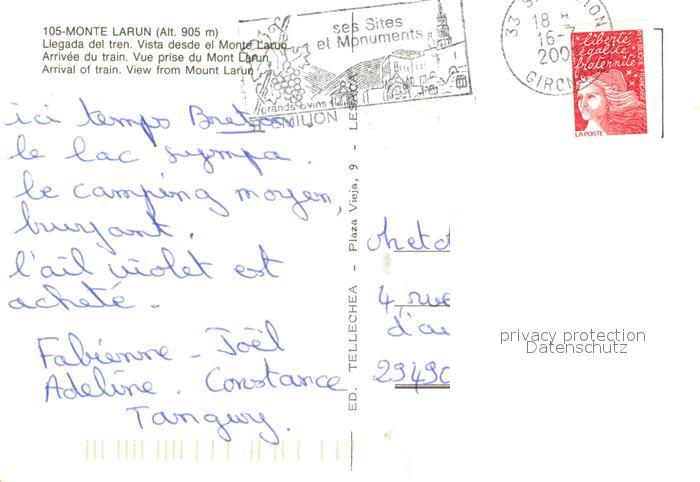 105-MONTE LARUN (Alt. 905 m)
Llegada del tren. Vista desde el Monte Larun
Arrivée du train. Vue prise du Mont Larun
Arrival of train. View from Mount Larun
ses Sites
et Monuments
grands vins
EMILION
33
18 H
16-7
200
GIRON
liberté
égalité
fraternité
RÉPUBLIQUE FRANÇAISE
LA POSTE
ici temps Breton.
le lac sympa.
le camping moyen,
bruyant.
l'ail violet est
acheté.
Fabienne - Joël
Adeline. Constance
Tanguy.
ED. TELLECHEA - Plaza Vieja, 9 - LESACA
4 rue
d'au
29490
privacy protection
Datenschutz